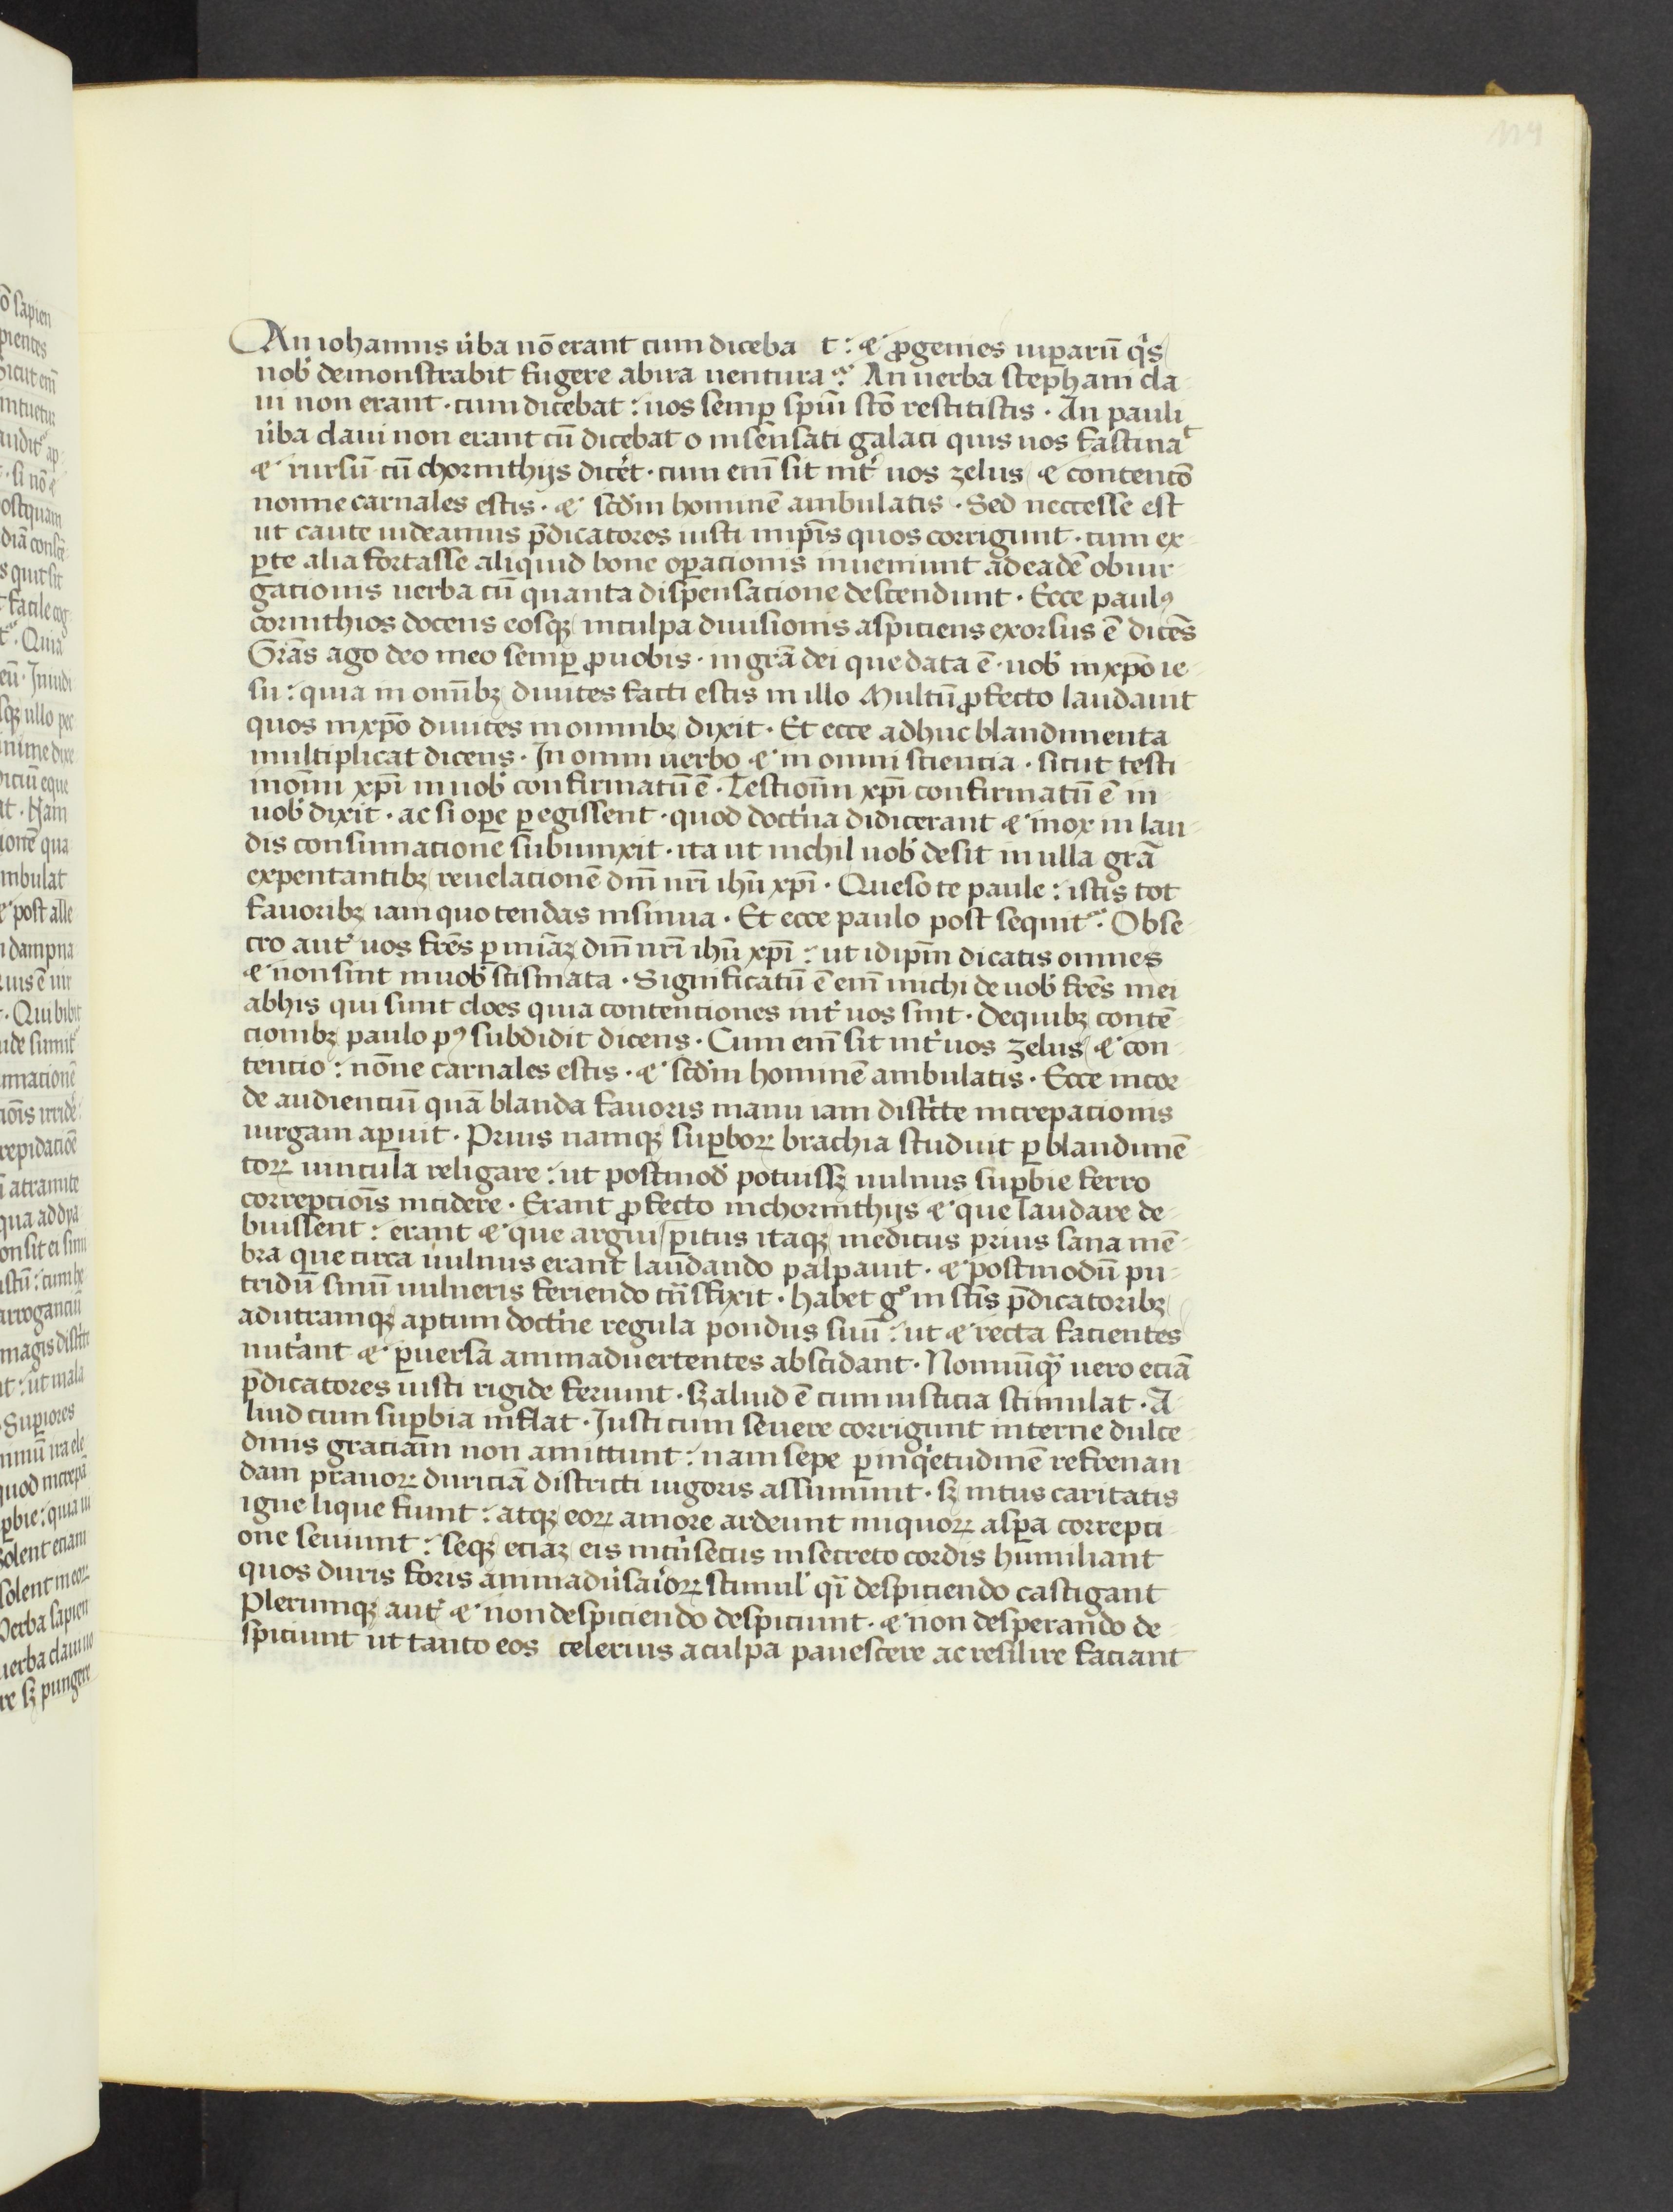 An iohannis ũba nõ erant cum diceba t : & ꝓgenies uiꝑarũ q̇s
nob̓ demonstrabit fugere abira uentura : An uerba stephani cla-
ui non erant · cum dicebat : uos semꝑ spũi sc̃o restitistis · An pauli
ũba claui non erant cũ dicebat o insensati galaci quis uos fascinat
& rursũ cũ chorinthijs dicẽt · cum eni᷃ sit int̓ uos zelus & contencõ
nonne carnales estis · & sc̃dm hominẽ ambulatis · Sed neccesse est
ut caute uideamus p̃dicatores iusti inip̃is quos corrigunt · cum ex-
ꝑte alia fortasse aliquid bone oꝑacionis inueniunt ad eadẽ obiur-
gacionis uerba cũ quanta dispensacione descendunt · Ecce paulꝰ
corinthios docens eosqꝫ inculpa diuisionis aspiciens exorsus ẽ dicẽs
Grãs ago deo meo semꝑ ꝓuobis · in grã dei que data ẽ · uob̓ in xp̃o ie-
su : quia in omĩbꝫ diuites facti estis in illo Multũ ꝓfecto laudauit
quos in xp̃o diuites in omnibꝫ dixit · Et ecce adhuc blandimenta
multiplicat dicens · In omni uerbo & in omni sciencia · sicut testi-
moĩni xp̃i in uob̓ confirmatũ ẽ · Testioĩm xp̃i confirmatũ ẽ in
uob̓ dixit · ac si oꝑe ꝑegissent · quod doct̓ina didicerant & mox in lau-
dis consumacione subiunxit · ita ut nichil uob̓ desit in ulla grã
expentantibꝫ reuelacionẽ dñi nr̃i ihũ xp̃i · Queso te paule : istis tot
fauoribꝫ iam quo tendas insinua · Et ecce paulo post sequit᷑ : Obse-
cro aut̓ uos frẽs ꝑ miãꝫ dñi nr̃i ihũ xp̃i : ut idip̃m dicatis omnes
& non sint in uob̓ scismata · Significatũ ẽ eni᷃ michi de uob̓ frẽs mei
abhis qui sunt cloes quia contentiones int̓ uos sint · Dequibꝫ contẽ-
cionibꝫ paulo pꝰ subdidit dicens · Cum eni᷃ sit int̓ uos zelus & con-
tentio : nõne carnales estis · & sc̃dm hominẽ ambulatis · Ecce in cor-
de audienciũ quã blanda fauoris manu iam distr̓cte increpationis
uirgam aꝑuit · Prius namqꝫ suꝑboꝝ brachia studuit ꝑ blandimẽ-
toꝝ uincula religare : ut postmod̓ potuissꝫ uulnus suꝑbie ferro
correpcioĩs incidere · Erant ꝓfecto inchorinthijs & que laudare de-
buissent : erant & que argui ꝑitus itaqꝫ medicus prius sana mẽ-
bra que circa uulnus erant laudando palpauit · & postmodũ pu-
tridũ sinũ uulneris feriendo tr̃isfixit · habet g̊ in sc̃is p̃dicatoribꝫ
adutramqꝫ aptum doct̓ne regula pondus suũ : ut & recta facientes
nutr̓ant & ꝑuersa animaduertentes abscidant · Nonnũqꝫ̃ uero eciã
p̃dicatores iusti rigide feriunt · sꝫ aliud ẽ cum iusticia stimulat · A-
liud cum suꝑbia inflat · Justi cum seuere corrigunt interne dulce-
dinis graciam non amittunt : nam sepe ꝑ inq̇etudinẽ refrenan-
dam prauoꝝ duriciã districti uigoris assumunt · sꝫ intus caritatis
igne lique fiunt : atqꝫ eoꝝ amore ardeunt iniquoꝝ asꝑa correpci-
one seuiunt : seqꝫ eciaꝫ eis int̓nsecus in secreto cordis humiliant
quos duris foris animadũsaĩoꝝ stimul̓ qĩ despiciendo castigant
Plerumqꝫ aut̓ & non despiciendo despiciunt · & non desperando de-
spiciunt ut tanto eos celerius a culpa pauescere ac resilire faciant